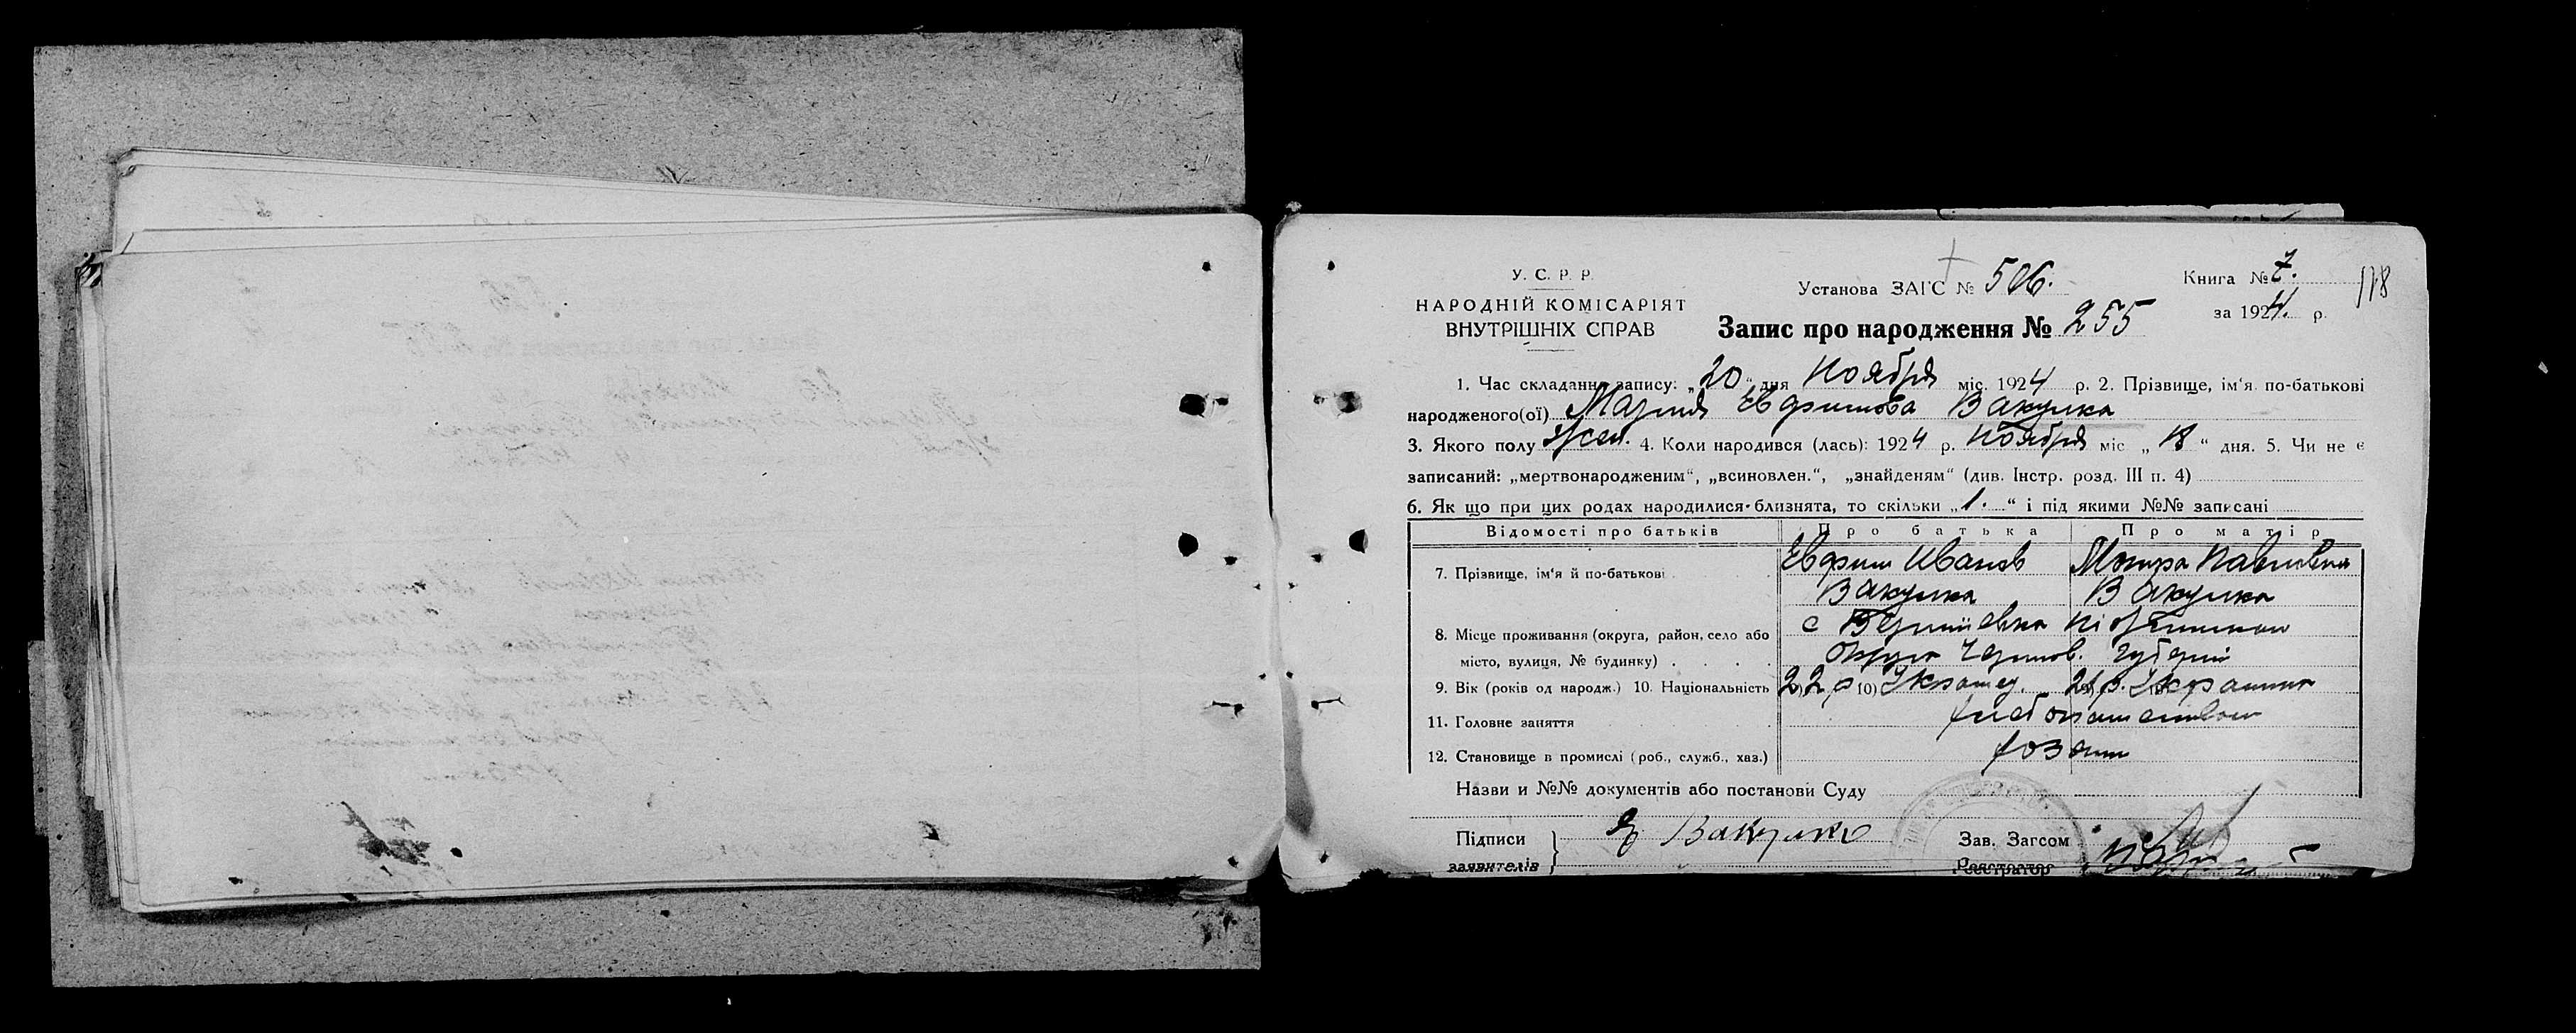 У. С. Р. Р.
НАРОДНІЙ КОМІСАРІЯТ
ВНУТРІШНІХ СПРАВ
Установа ЗАГС № 506.
Книга № 7.
за 1924. р.
118
Запис про народження № 255
1. Час складання запису: „20“ дня Ноября міс. 1924 р. 2. Прізвище, ім‘я по-батькові
народженого(ої) Мария Евфимова Вакулка
3. Якого полу жен. 4. Коли народився (лась): 1924 р. Ноября міс „18“ дня. 5. Чи не є
записаний: „мертвонародженим“, „всиновлен.“, „знайденям“ (див. Інстр. розд. III п. 4)
6. Як що при цих родах народилися близнята, то скільки „1.“ і під якими №№ записані
Відомості про батьків Про батька Про матір
7. Прізвище, ім‘я й по-батькові Евфим Иванов Павловна
Вакулка Вакулка
8. Місце проживання (округа, район, село або с
місто, вулиця, № будинку) Округа Чернигов. губернии
9. Вік (років од народж.) 10. Національність 9) 22 р 10) р.
11. Головне заняття
12. Становище в промислі (роб., служб., хаз.)
Назви и №№ документів або постанови Суду
Підписи
заявителів
Е Вакулка
Зав. Загсом
Реєстратор